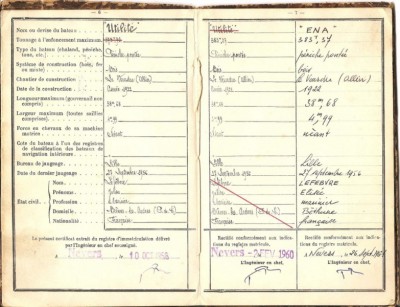 — 6 —
— 7 —
Nom ou devise du bateau
"Utilité"
"ENA"
Tonnage à l'enfoncement maximum
383,57
Type du bateau (chaland, péniche, toue, etc.)
Péniche pontée
péniche pontée
Système de construction (bois, fer ou mixte)
Bois
bois
Chantier de construction
Le Veurdre (Allier)
Le Veurdre (Allier)
Date de la construction
Année 1922
1922
Longueur maximum (gouvernail non compris)
38m,68
38m,68
Largeur maximum (toutes saillies comprises)
4m,99
4m,99
Force en chevaux de sa machine motrice
néant
néant
Cote du bateau à l'un des registres de classification des bateaux de navigation intérieure
Bureau de jaugeage
Lille
Lille
Date du dernier jaugeage
27 Septembre 1956
27 septembre 1956
État civil
Nom
LEFEBVRE
Prénoms
Julien
Elisée
Profession
Marinier
marinier
Domicile
Béthune
Nationalité
Française
française
Le présent certificat extrait du registre d'immatriculation délivré par l'Ingénieur en chef soussigné.
A Nevers, le 10 OCT 1958
Rectifié conformément aux indications du registre matricule.
Nevers - 2 FEV. 1960
L'Ingénieur en chef,
Rectifié conformément aux indications du registre matricule.
A NEVERS, le
L'Ingénieur en chef,